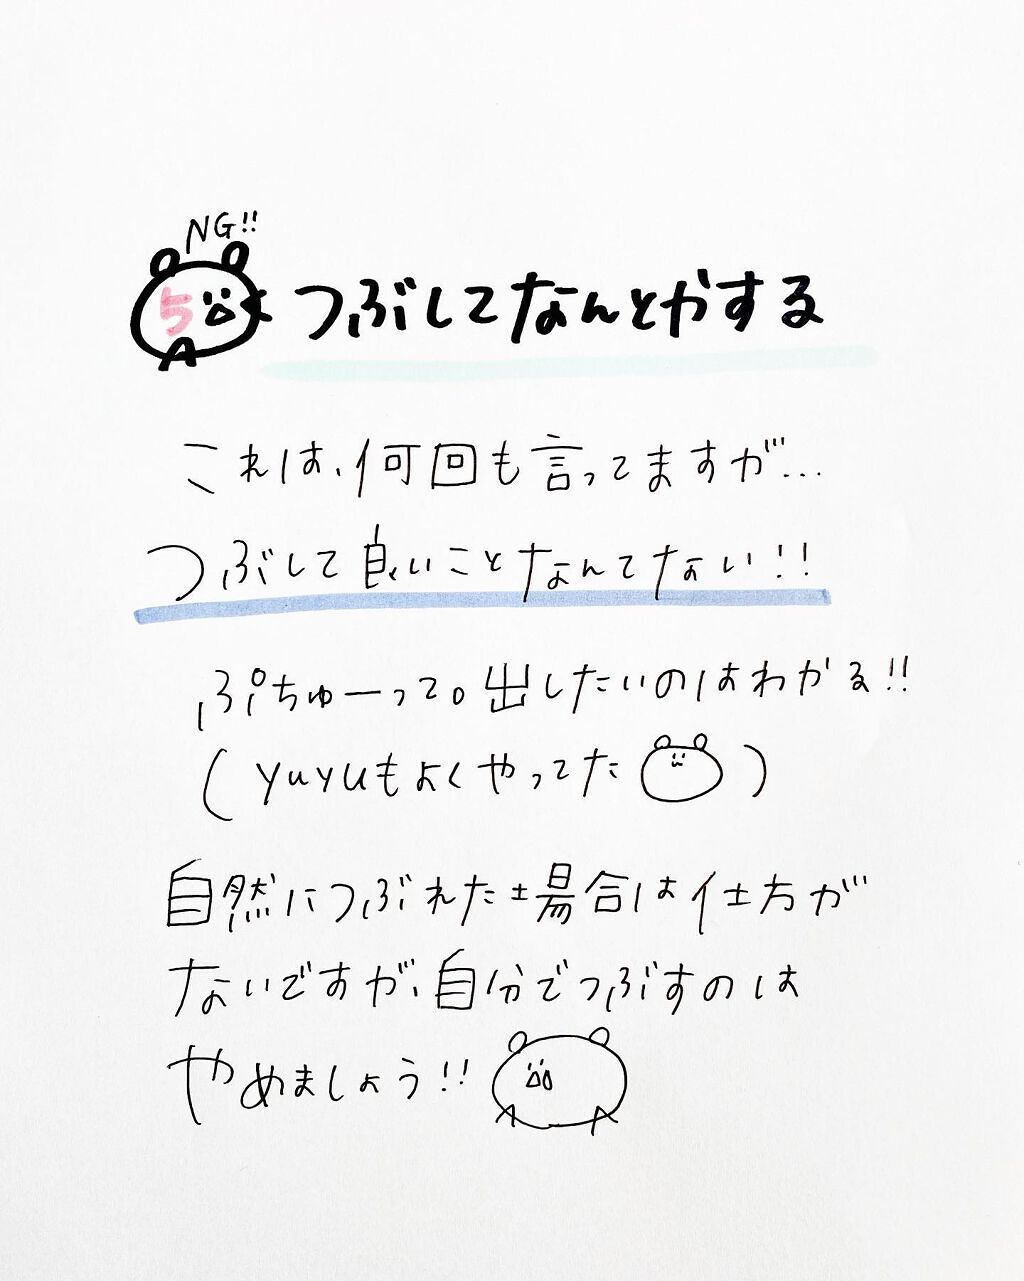 NG!!
5 つぶしてなんとかする
これは、何回も言ってますが…
つぶして良いことなんてない!!
ぷちゅーって。出したいのはわかる!!
(yuyuもよくやってた)
自然につぶれた場合は仕方が
ないですが、自分でつぶすのは
やめましょう!!